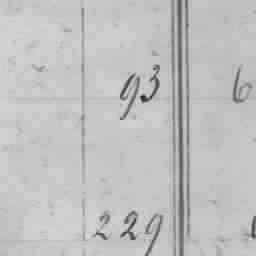 93 6
229